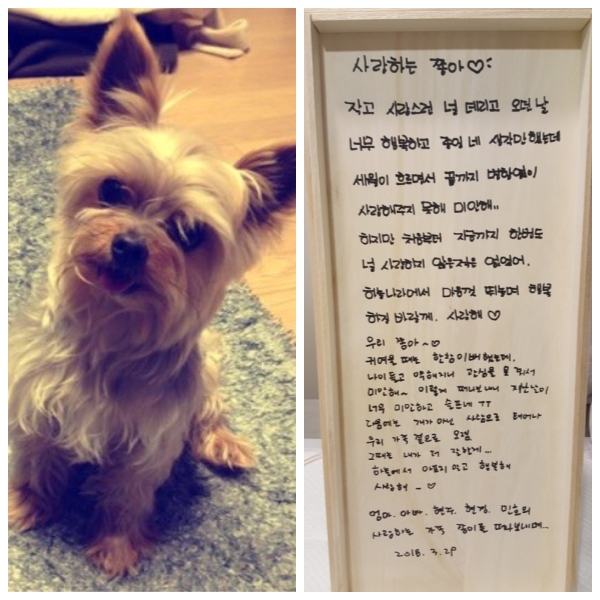 사랑하는 쫑아♡
작고 사랑스런 널 데리고 오던 날
너무 행복하고 종일 네 생각만 했는데
세월이 흐르면서 끝까지 변함없이
사랑해주지 못해 미안해..
하지만 처음부터 지금까지 한번도
널 사랑하지 않은적은 없었어.
하늘나라에서 마음껏 뛰놀며 행복
하길 바랄께. 사랑해 ♡
우리 쫑아~♡
귀여울 때는 한참 이뻐했는데,
나이들고 약해지니 관심을 못 줘서
미안해~ 이렇게 떠나보내니 지난날이
너무 미안하고 슬프네 ㅜㅜ
다음에는 개가 아닌 사람으로 태어나
우리 가족 곁으로 오렴
그때는 내가 더 잘할게...
하늘에서 아프지 말고 행복해
사랑해 ~ ♡
엄마. 아빠. 현주. 현경. 민호의
사랑하는 가족 쫑이를 떠나보내며...
2018. 3. 29